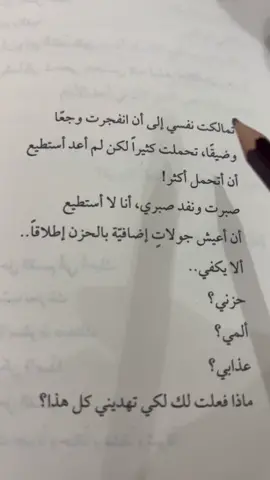 تمالكت نفسي إلى أن انفجرت وجعًا
وضيقًا، تحملت كثيراً لكن لم أعد أستطيع
أن أتحمل أكثر!
صبرت ونفد صبري، أنا لا أستطيع
أن أعيش جولاتٍ إضافيّة بالحزن إطلاقاً..
ألا يكفي..
حزني؟
ألمي؟
عذابي؟
ماذا فعلت لك لكي تهديني كل هذا؟